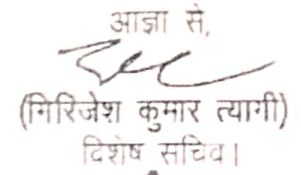 आज्ञा से,
(गिरिजेश कुमार त्यागी)
विशेष सचिव।